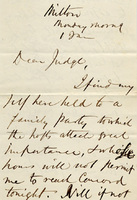 Milton
Monday morng
1 Dec
Dear Judge,
I find my
self here held to a
family party, to which
the hosts attach great
importance, & whose
hours will not permit
me to reach Concord
tonight. Will if not